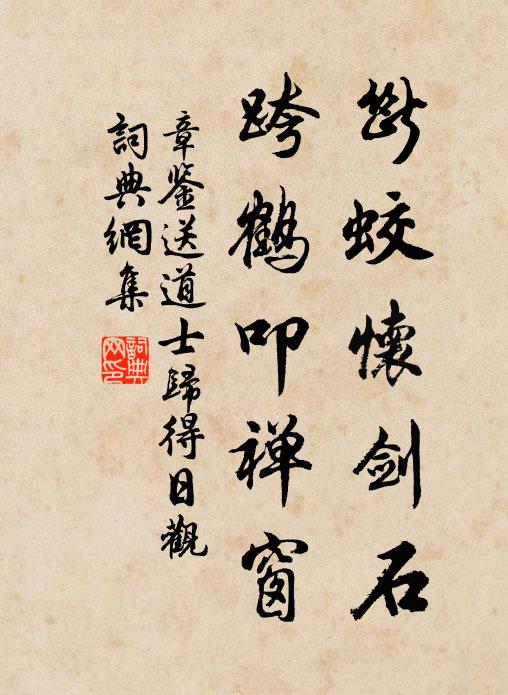 斷蛟懷剑石
跨鶴叩禅窗
章鉴送道士歸得日觀
詞典網集
詞典網印